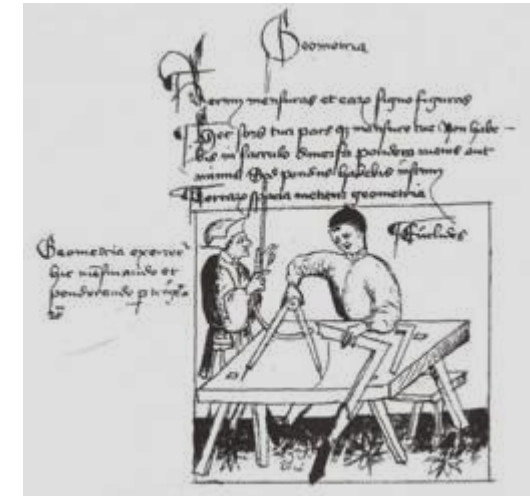 Geometria
Rerum mensuras et earum signo figuras
Hec sors tua pars et mensure tue Non habe-
bis in sacculo diversa pondera maius aut
minus Sed pondus habebis iustum
Terrarum spacia metiens geometria
Euclides
Geometria exercetur
hic mensurando et
ponderando